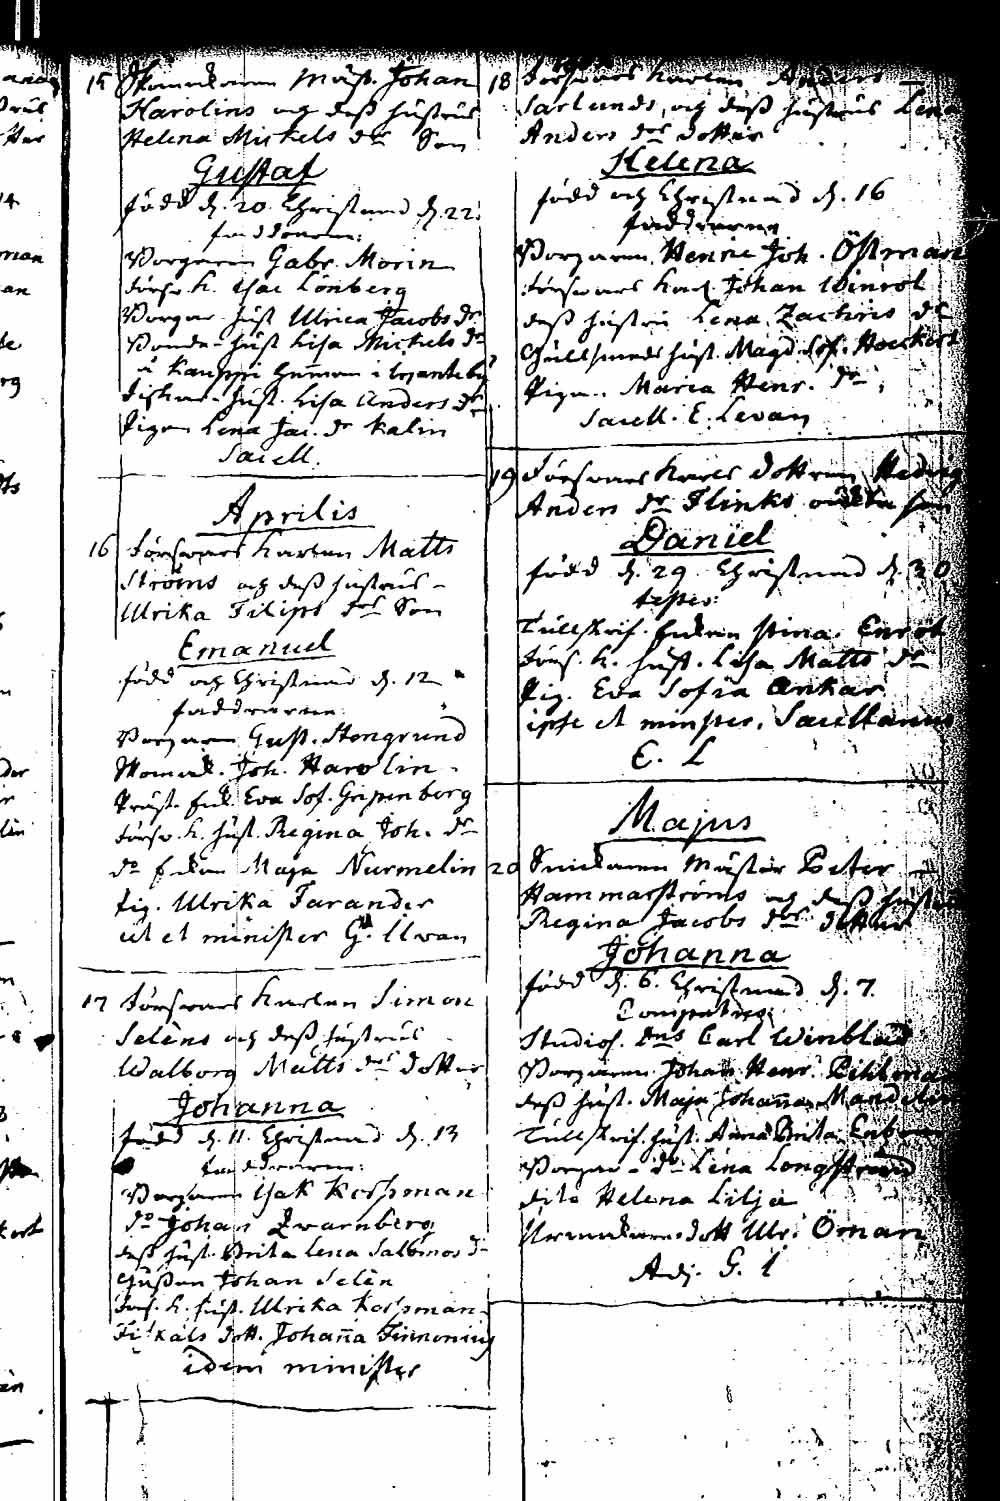 15 Skomakaren Mäst. Johan
Karolins och dess hustrus
Helena Mickels drs Son
Gustaf
född d. 20. Christnad d. 22.
faddrarne:
Borgaren Gabr. Morin
Försv. K. Isac Lönberg
Borgar hust Ulrica Jacobs dr
Bonde hust Lisa Mickels dr
Fiskar hust. Lisa Anders dr
Pigan Lena Jac. dr Kalin
Sacell.
Aprilis
16 Försvars Karlen Matts
Ströms och dess hustrus
Ulrika Filips drs Son
Emanuel
född och Christnad d. 12
faddrarne:
Borgaren Gust. Stengrund
Skomak. Joh. Karolin
Präst. Enk Eva Sof. Gripenberg
Försv. K. hust. Regina Joh. dr
do Enkan Maja Nurmelin
Pig. Ulrika Farander
ut et minister G. Elvan
17 Försvars Karlen Simon
Seléns och dess hustrus
Walborg Matts drs Dotter
Johanna
född d. 11. Christnad d. 13
faddrarne:
Borgaren Isak Korsman
do Johan Qvarnberg
dess hust. Brita Lena Salomos dr
Johan Selén
Förs. K. hust. Ulrika Korsman
Fiskals dott. Johaña Finnonius
idem minister
18 Försvars Karlen Anders
Sarlunds, och dess hustrus Lena
Anders drs dotter
Helena
född och Christnad d. 16
faddrarne
Borgaren Henric Joh. Östman
Försvars Karl. Johan Winrot
dess hustru Lena Zachris dr
Gullsmeds hust. Magd. Sof. Hoeckert
Pigan Maria Henr. dr
Sacell. E. Levan
19 Försvars Karls dottren Hedvig
Anders dr Flinks oäkta son
Daniel
född d. 29 Christnad d. 30
testes:
Tullskrif. Enkan Stina Enrot
Förs. K. hust. Lisa Matts dr
Pig. Eva Sofia Ankar
ipse et minster. Sacellanus
E. L
Majus
20 Snickaren Mäster Peter
Hammarströms och dess hustrus
Regina Jacobs drs dotter
Johanna
född d. 6. Christnad d. 7.
Compatres:
Studios. Dns Carl Winblad
Borgaren Johan Henr. Pihlman
dess hust. Maja Johaña Mandelin
Tullskrif. hust. Anna Brita
Borgar do Lena Longstrand
dito Helena Lilja
dott Ulr. Öman
Adj. G. L